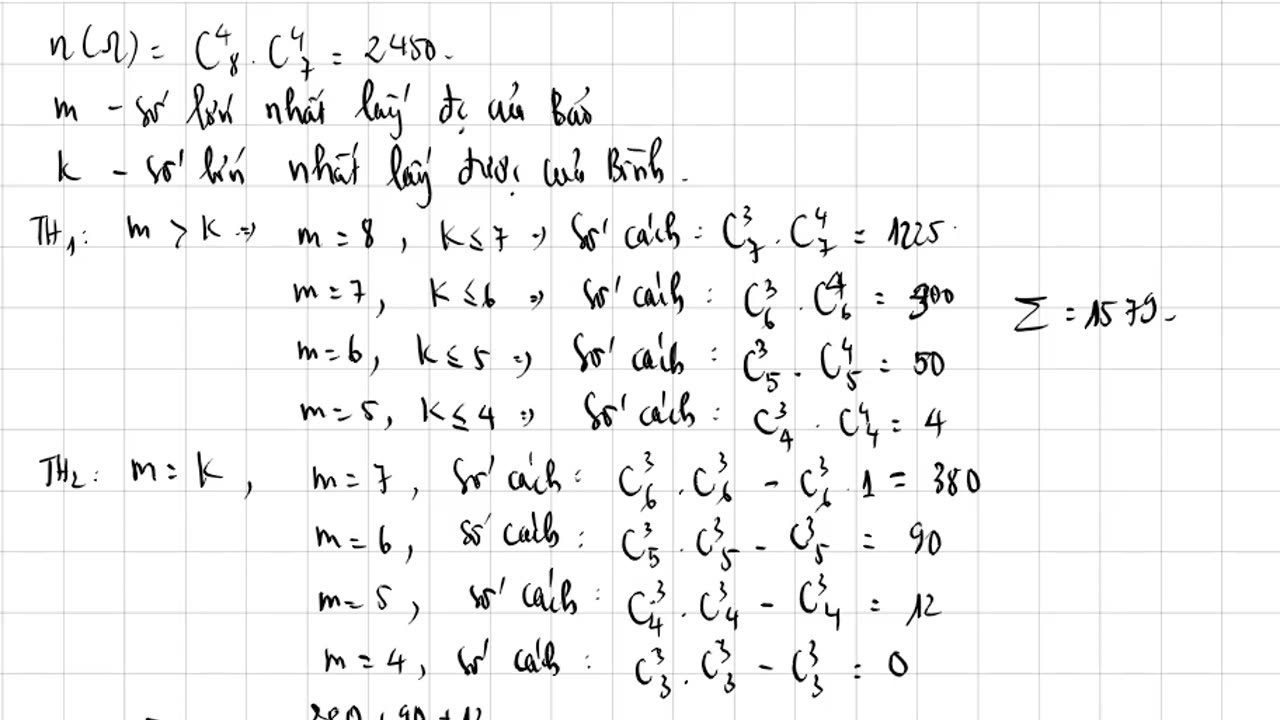 n(Ω) = C⁴₈ . C⁴₇ = 2450.
m - số lớn nhất lấy đc của Bảo
k - số lớn nhất lấy được của Bình.
TH₁: m > k => m = 8, k ≤ 7 => Số cách: C³₇ . C⁴₇ = 1225.
m = 7, k ≤ 6 => số cách: C³₆ . C⁴₆ = 300
Σ = 1579.
m = 6, k ≤ 5 => Số cách: C³₅ . C⁴₅ = 50
m = 5, k ≤ 4 => Số cách: C³₄ . C⁴₄ = 4
TH₂: m = k, m = 7, Số cách: C³₆ . C³₆ - C³₆ . 1 = 380
m = 6, số cách: C³₅ . C³₅ - C³₅ = 90
m = 5, số cách: C³₄ . C³₄ - C³₄ = 12
m = 4, số cách: C³₃ . C³₃ - C³₃ = 0
380 + 90 + 12